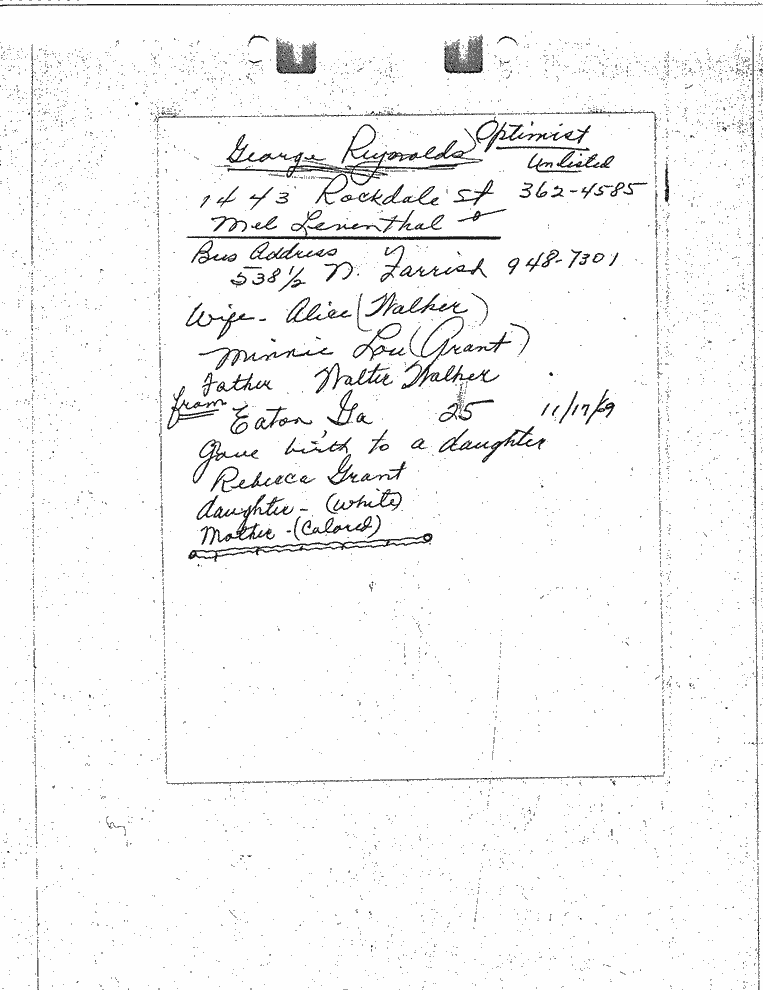 George Reynolds) Optimist
Unlisted
1443 Rockdale St 362-4585
Mel Leventhal
Bus Address
538 1/2 N. Farrish 948-7301
Wife - Alice (Walker)
Minnie Lou (Grant)
Father Walter Walker
from Eaton Ga 25 11/17/69
Gave birth to a daughter
Rebecca Grant
daughter - (White)
Mother - (Colored)